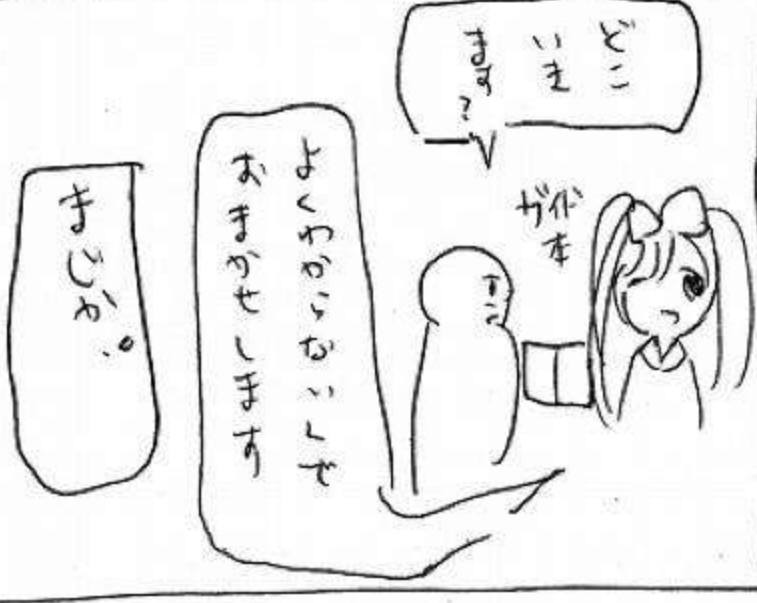 どこ
いき
ます？
ガイド
本
よくわからないんで
おまかせします
まじか。